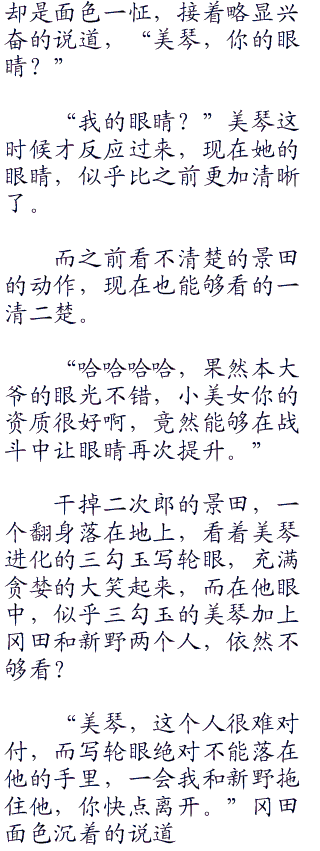 却是面色一怔，接着略显兴
奋的说道，“美琴，你的眼
睛？”
“我的眼睛？”美琴这
时候才反应过来，现在她的
眼睛，似乎比之前更加清晰
了。
而之前看不清楚的景田
的动作，现在也能够看的一
清二楚。
“哈哈哈哈，果然本大
爷的眼光不错，小美女你的
资质很好啊，竟然能够在战
斗中让眼睛再次提升。”
干掉二次郎的景田，一
个翻身落在地上，看着美琴
进化的三勾玉写轮眼，充满
贪婪的大笑起来，而在他眼
中，似乎三勾玉的美琴加上
冈田和新野两个人，依然不
够看？
“美琴，这个人很难对
付，而写轮眼绝对不能落在
他的手里，一会我和新野拖
住他，你快点离开。”冈田
面色沉着的说道